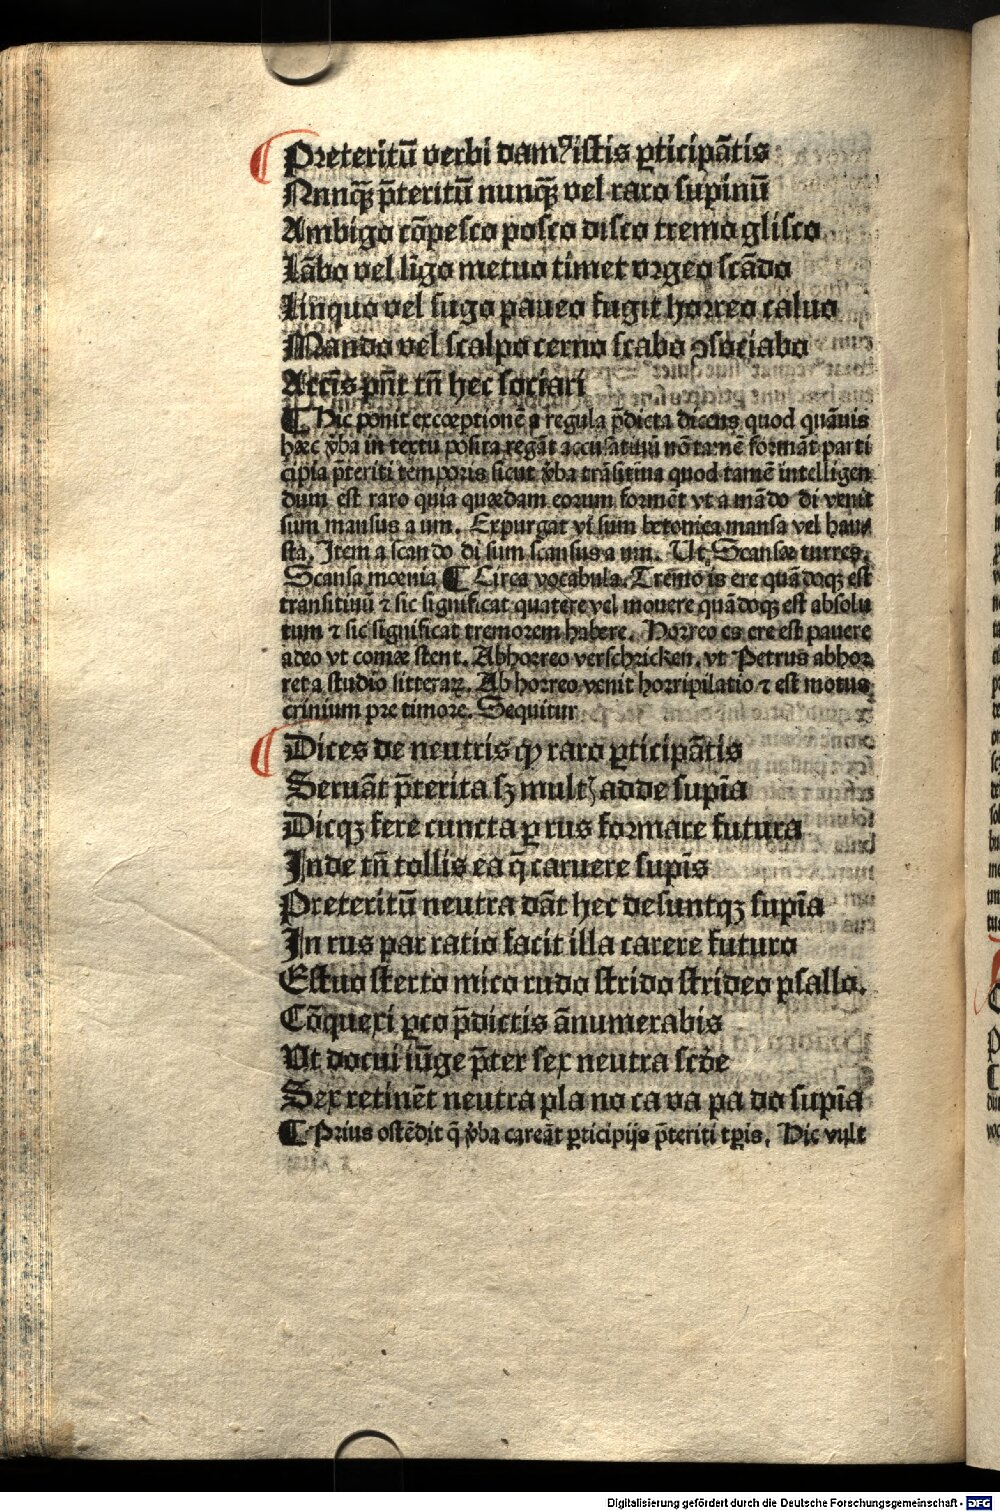 Preteritū verbi dam⁹ istis ꝑticipātis
Nunqꝫ p̄teritū nunqꝫ vel raro supinū
Ambigo cōpesco posco disco tremo glisco
Lābo vel līgo metuo timet vrgeo scādo
Linquo vel sugo paueo fugit horreo caluo
Mando vel scalpo cerno scabo ↄsociabo
Accīs pn̄t tn̄ hec sociari
¶ Hic ponit excœptionē a regula p̄dicta dicens quod quāuis
hæc v̄ba in textu posita regāt accusatiuū nō tamē formāt parti
cipia p̄teriti temporis sicut v̄ba trāsitiua quod tamē intelligen
dum est raro quia quædam eorum formēt vt a mādo di venit
sum mansus a um. Expurgat vi sum betonica mansa vel hau⸗
sta. Item a scando di sum scansus a um. Ut. Scansæ turres.
Scansa mœnia ¶ Circa vocabula. Tremo is ere quādoqꝫ est
transitiuū ⁊ sic significat quatere vel mouere quādoqꝫ est absolu
tum ⁊ sic significat tremorem habere. Horreo es ere est pauere
adeo vt comæ stent. Abhorreo verschricken. vt Petrus abhor
ret a studio litteraꝝ. Ab horreo venit horripilatio ⁊ est motus
crinium pre timore. Sequitur
Dices de neutris ꝙ raro ꝑticipātis
Seruāt p̄terita sꝫ multꝭ adde supīa
Dicqꝫ fere cuncta ꝑ rus formare futura
Inde tn̄ tollis ea q̄ caruere supis
Preteritū neutra dāt hec desuntqꝫ supīa
In rus par ratio facit illa carere futuro
Estuo sterto mico rudo strido strideo psallo.
Cōquexi ꝑco p̄dictis ānumerabis
Ut docui iūge p̄ter sex neutra scđe
Sex retinēt neutra pla no ca va pa do supīa
¶ Prius ostēdit q̄ v̄ba careāt ꝑticipijs p̄teriti tꝑis. Hic vult
Digitalisierung gefördert durch die Deutsche Forschungsgemeinschaft - DFG